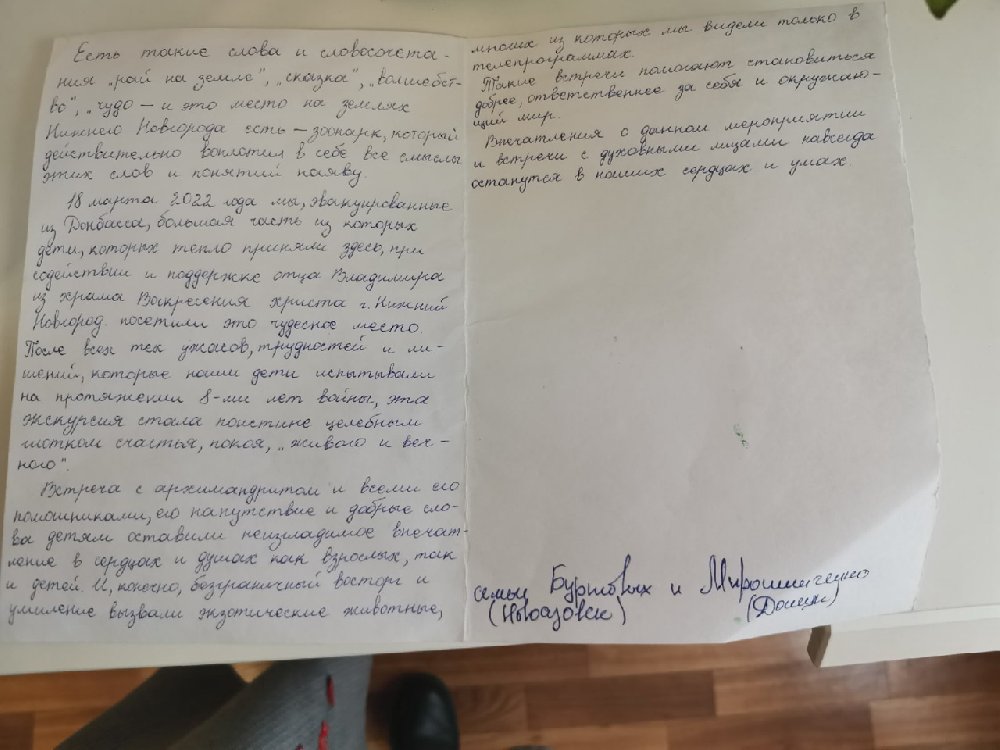 Есть такие слова и словосочета-
ния „рай на земле", „сказка", „волшебст-
во", „чудо – и это место на землях
Нижнего Новгорода есть – зоопарк, который
действительно воплотил в себе все смыслы
этих слов и понятий наяву.
18 марта 2022 года мы, эвакуированные
из Донбасса, большая часть из которых
дети, которых тепло приняли здесь, при
содействии и поддержке отца Владимира
из храма Воскресения Христа г. Нижний
Новгород. посетили это чудесное место.
После всех тех ужасов, трудностей и ли-
шений, которые наши дети испытывали
на протяжении 8-ми лет войны, эта
экскурсия стала поистине целебным
глотком счастья, покоя, „живого и веч-
ного".
Встреча с архимандритом и всеми его
помощниками, его напутствие и добрые сло-
ва детям оставили неизгладимое впечат-
ление в сердцах и душах как взрослых, так
и детей. И, конечно, безграничный восторг и
умиление вызвали экзотические животные,
многих из которых мы видели только в
телепрограммах.
Такие встречи помогают становиться
добрее, ответственнее за себя и окружаю-
щий мир.
Впечатления о данном мероприятии
и встречи с духовными лицами навсегда
останутся в наших сердцах и умах.
семьи и
(Новоазовск) (Донецк)